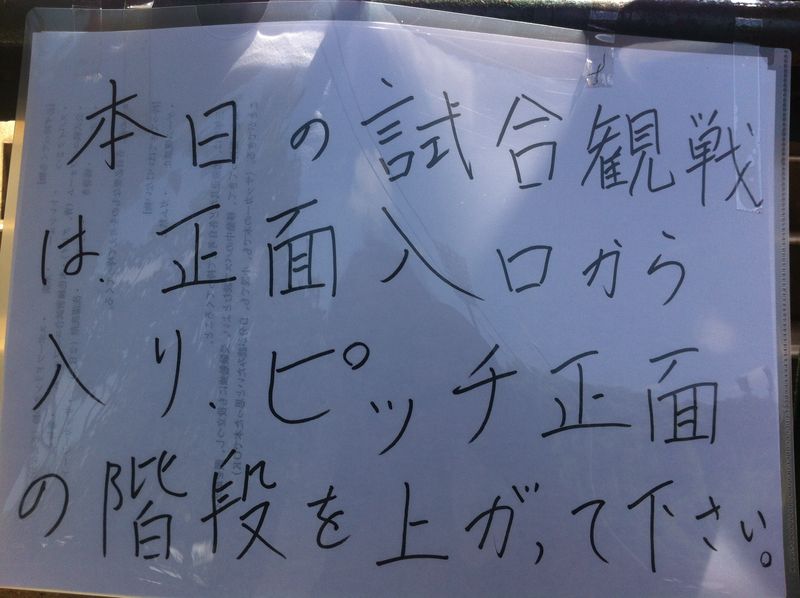 本日の試合観戦
は、正面入口から
入り、ピッチ正面
の階段を上がって下さい。